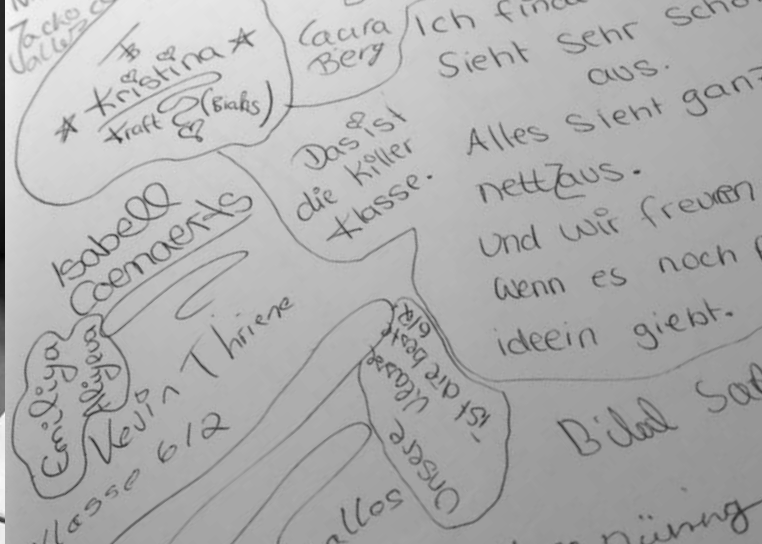 Kristina
Kraft (Biaks)
Laura
Berg
Ich find
Sieht sehr scho
aus.
Alles sieht ganz
nett aus.
und wir freuen
wenn es noch
ideein giebt.
Das ist
die Killer
Klasse.
Isabell
Coenaerts
Emiliya
Aliyeva
Kevin Thriene
Klasse 6/2
Unsere Klasse
ist die beste
6/2
Bilal
allos